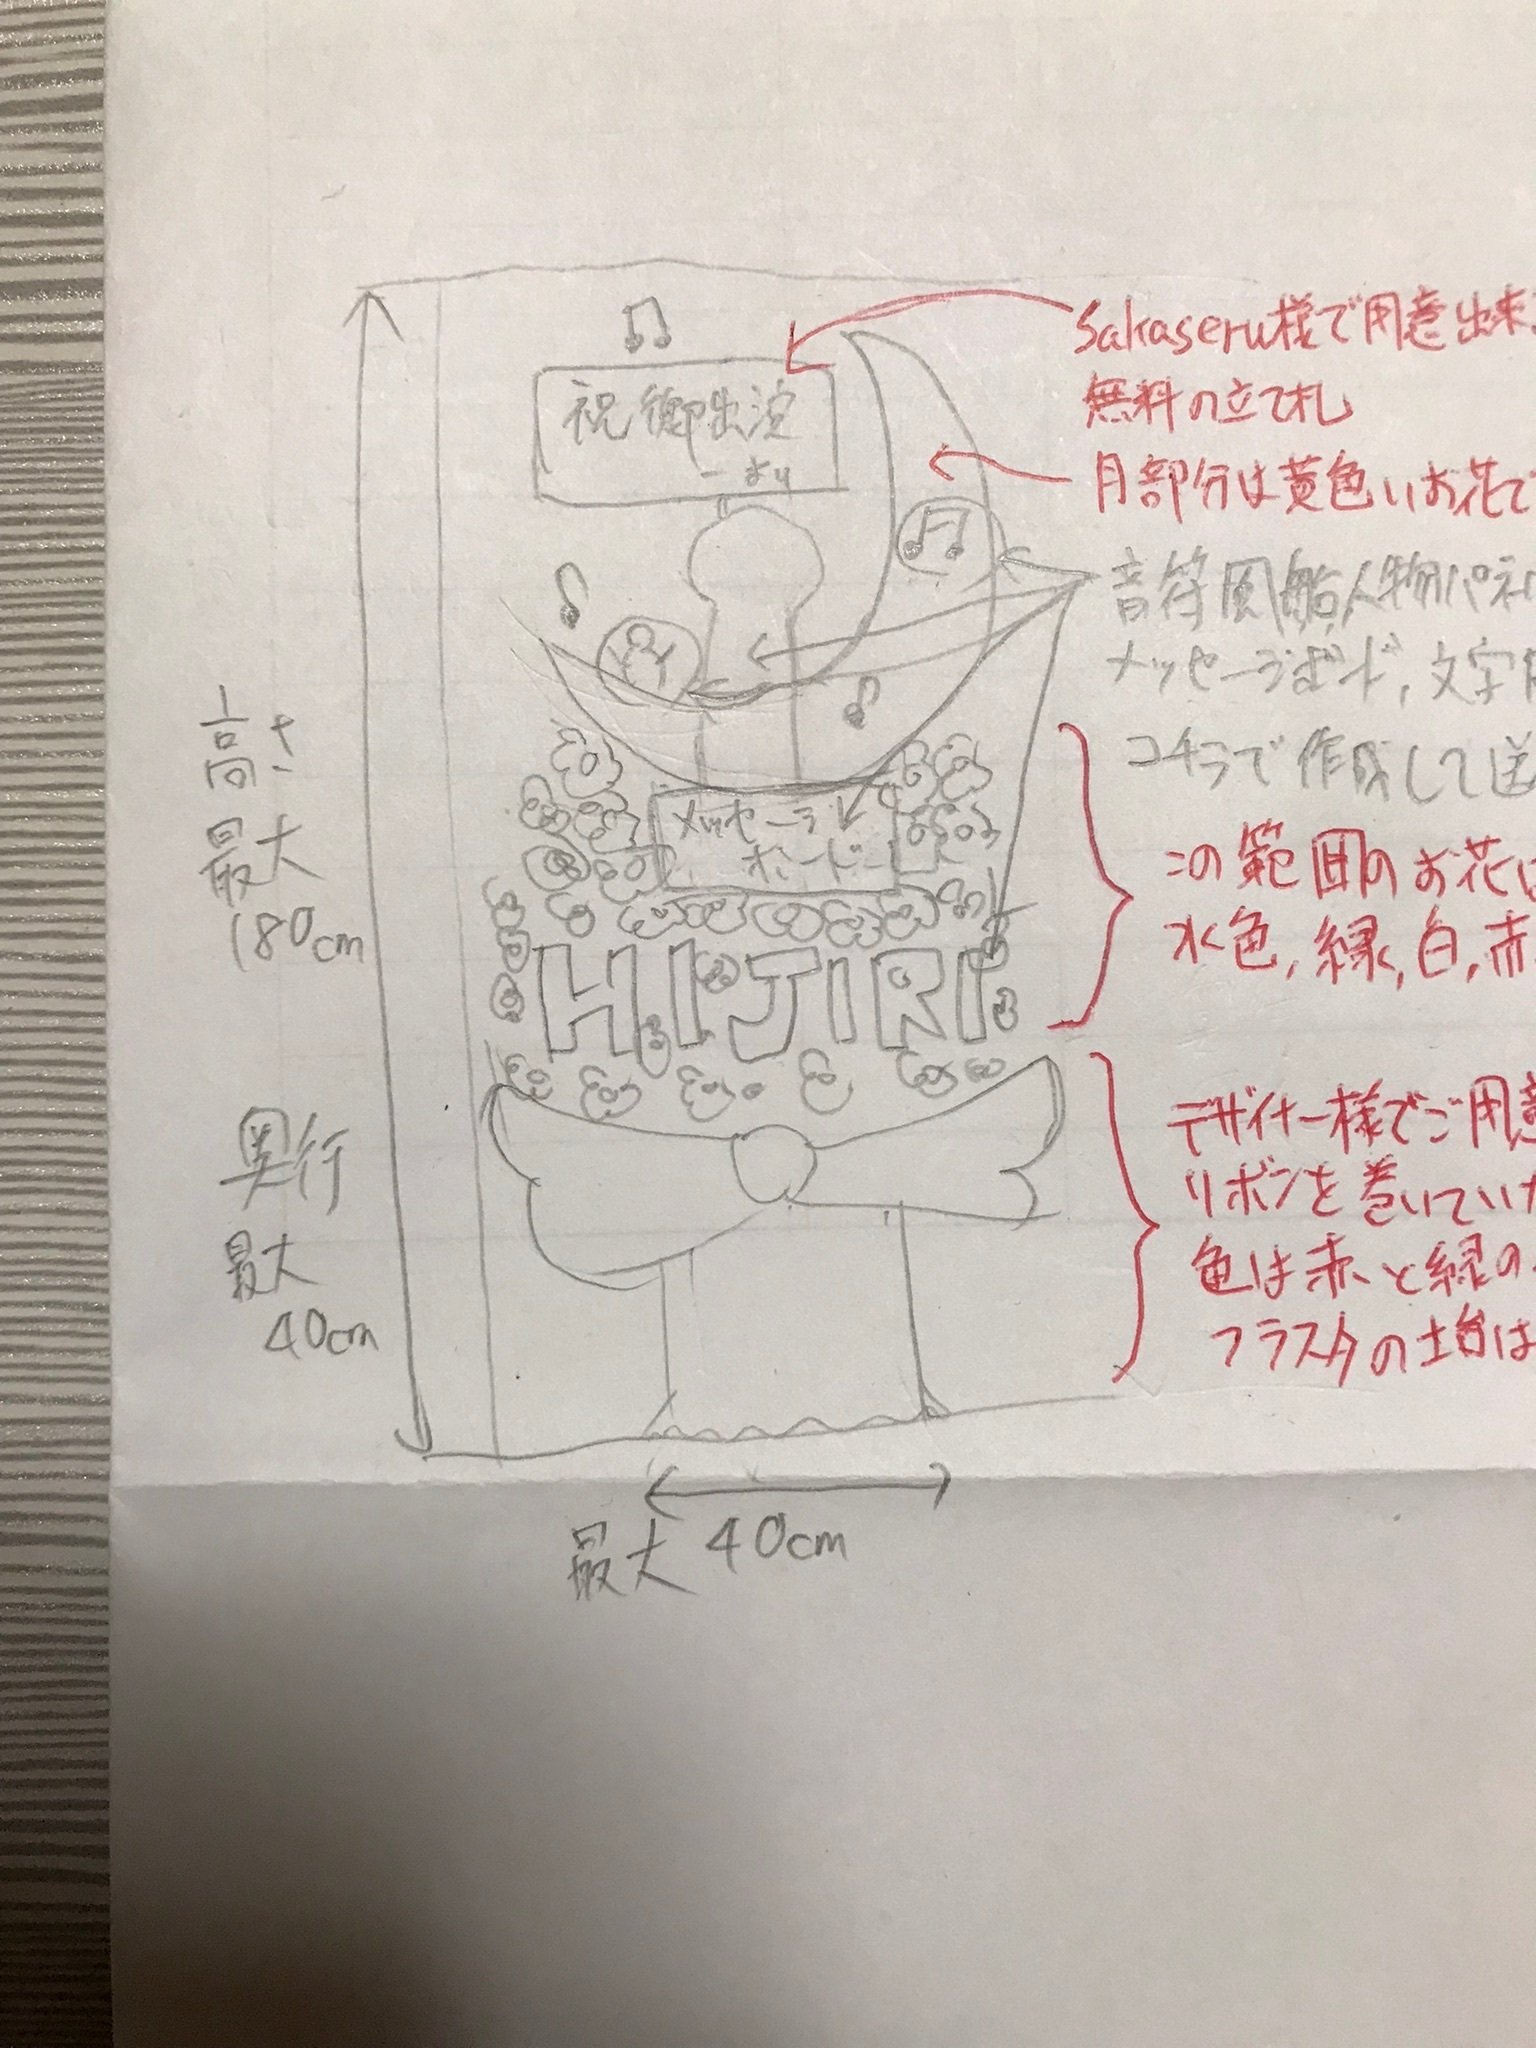 Sakaseru様で用意出来
無料の立て札
祝御出演
より
月部分は黄色いお花で
音符風船人物パネ
メッセージボード,文字
コチラで作成して送
高さ
最大
180cm
メッセージ
ボード
この範囲のお花は
水色,緑,白,赤
HIJIRI
デザイナー様でご用意
リボンを巻いていた
色は赤と緑の
フラスタの土台は
奥行
最大
40cm
最大 40cm